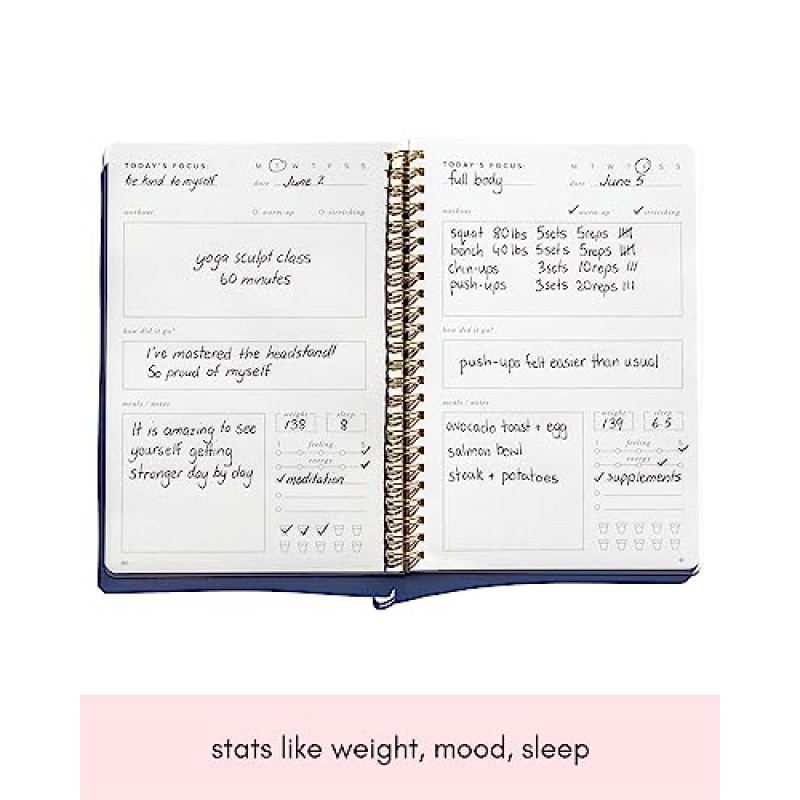 TODAY'S FOCUS: M T W T F S S
be kind to myself date June 2
workout warm-up stretching
yoga sculpt class
60 minutes
how did it go?
I've mastered the headstand!!
So proud of myself
meals / notes
It is amazing to see
yourself getting
stronger day by day
weight sleep
138 8
1 feeling 5
energy
meditation
TODAY'S FOCUS: M T W T F S S
full body date June 5
workout warm-up stretching
squat 80 lbs 5sets 5reps
bench 40 lbs 5sets 5reps
chin-ups 3sets 10reps III
push-ups 3sets 20reps III
how did it go?
push-ups felt easier than usual
meals / notes
avocado toast + egg
salmon bowl
steak + potatoes
weight sleep
139 6.5
1 feeling 5
energy
supplements
stats like weight, mood, sleep